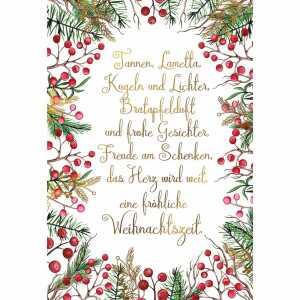 Tannen, Lametta,
Kugeln und Lichter,
Bratapfelduft
und frohe Gesichter,
Freude am Schenken,
das Herz wird weit,
eine fröhliche
Weihnachtszeit.